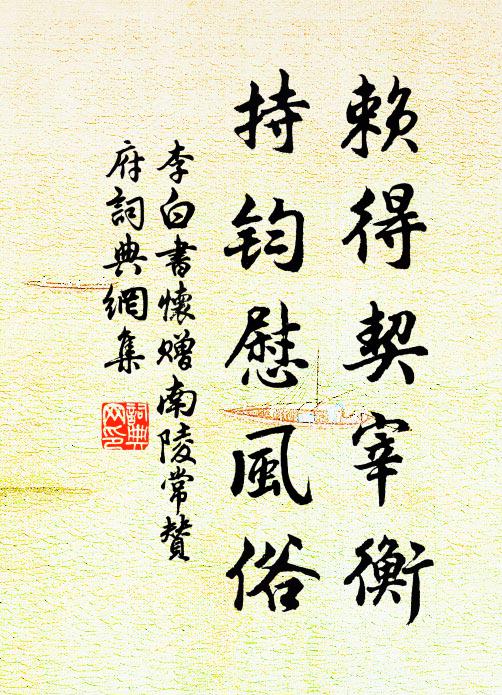 賴得契宰衡
持鈞慰風俗
李白書懷贈南陵常贊
府詞典網集
詞典
网印